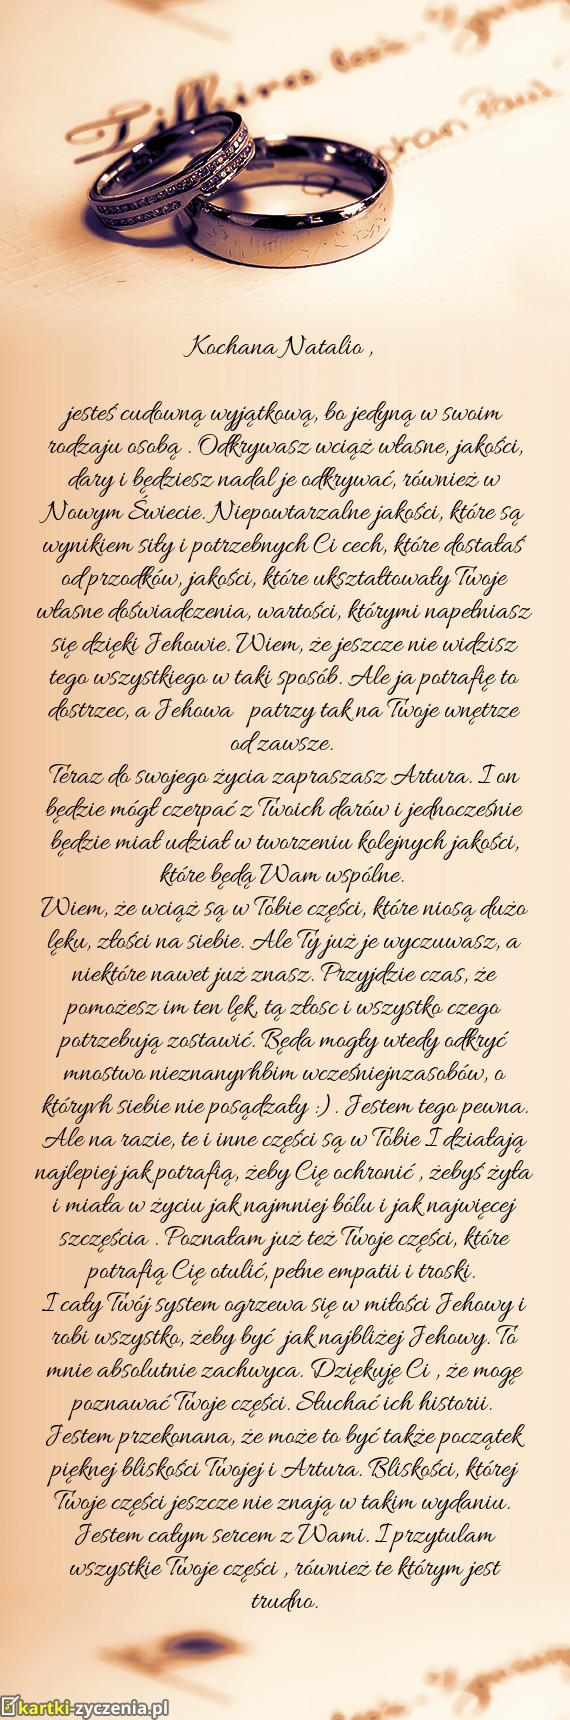 Kochana Natalio ,
jesteś cudowną wyjątkową, bo jedyną w swoim
rodzaju osobą . Odkrywasz wciąż własne, jakości,
dary i będziesz nadal je odkrywać, również w
Nowym Świecie. Niepowtarzalne jakości, które są
wynikiem siły i potrzebnych Ci cech, które dostałaś
od przodków, jakości, które ukształtowały Twoje
własne doświadczenia, wartości, którymi napełniasz
się dzięki Jehowie. Wiem, że jeszcze nie widzisz
tego wszystkiego w taki sposób. Ale ja potrafię to
dostrzec, a Jehowa patrzy tak na Twoje wnętrze
od zawsze.
Teraz do swojego życia zapraszasz Artura. I on
będzie mógł czerpać z Twoich darów i jednocześnie
będzie miał udział w tworzeniu kolejnych jakości,
które będą Wam wspólne.
Wiem, że wciąż są w Tobie części, które niosą dużo
lęku, złości na siebie. Ale Ty już je wyczuwasz, a
niektóre nawet już znasz. Przyjdzie czas, że
pomożesz im ten lęk, tą złosc i wszystko czego
potrzebują zostawić. Będa mogły wtedy odkryć
mnostwo nieznanyvhbim wcześniejnzasobów, o
któryvh siebie nie posądzały :) . Jestem tego pewna.
Ale na razie, te i inne części są w Tobie I działają
najlepiej jak potrafią, żeby Cię ochronić , żebyś żyła
i miała w życiu jak najmniej bólu i jak najwięcej
szczęścia . Poznałam już też Twoje części, które
potrafią Cię otulić, pełne empatii i troski.
I cały Twój system ogrzewa się w miłości Jehowy i
robi wszystko, żeby być jak najbliżej Jehowy. To
mnie absolutnie zachwyca. Dziękuję Ci , że mogę
poznawać Twoje części. Słuchać ich historii.
Jestem przekonana, że może to być także początek
pięknej bliskości Twojej i Artura. Bliskości, której
Twoje części jeszcze nie znają w takim wydaniu.
Jestem całym sercem z Wami. I przytulam
wszystkie Twoje części , również te którym jest
trudno.
kartki-zyczenia.pl